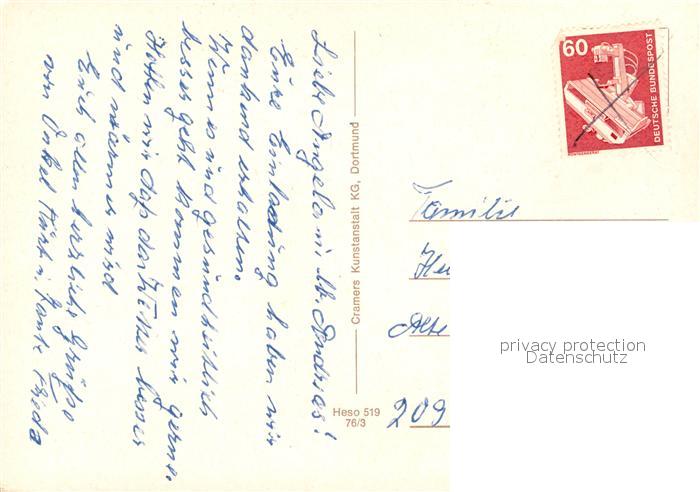 Liebe Angela u. Andreas!
Eure Einladung haben wir
dankend erhalten.
Wenn es uns gesundheitlich
besser geht kommen wir gerne.
Hoffen wir daß das Wetter besser
und wärmer wird
Euch allen herzliche Grüße
von Onkel Kurt u. Tante Frieda
Cramers Kunstanstalt KG, Dortmund
Heso 519
76/3
60
DEUTSCHE BUNDESPOST
RÖNTGENGERÄT
Familie
He
Alte
209
privacy protection
Datenschutz